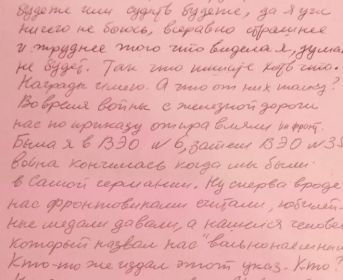 будете или судить будете, да я уже
ничего не боюсь, всеравно страшнее
и труднее этого что видела я, думаю
не будет. Так что пишите хоть что.
Награды имею. А что от них толку?
Во время войны с железной дороги
нас по приказу отправляли на фронт.
Была я в ВЭО №6, затем ВЭО №35
война кончилась когда мы были
в самой германии. Ну сперва вроде
нас фронтовиками считали, юбилей-
ные медали давали, а нашелся человек
который назвал нас "вольнонаемными
Кто-то же издал этот указ. Кто?